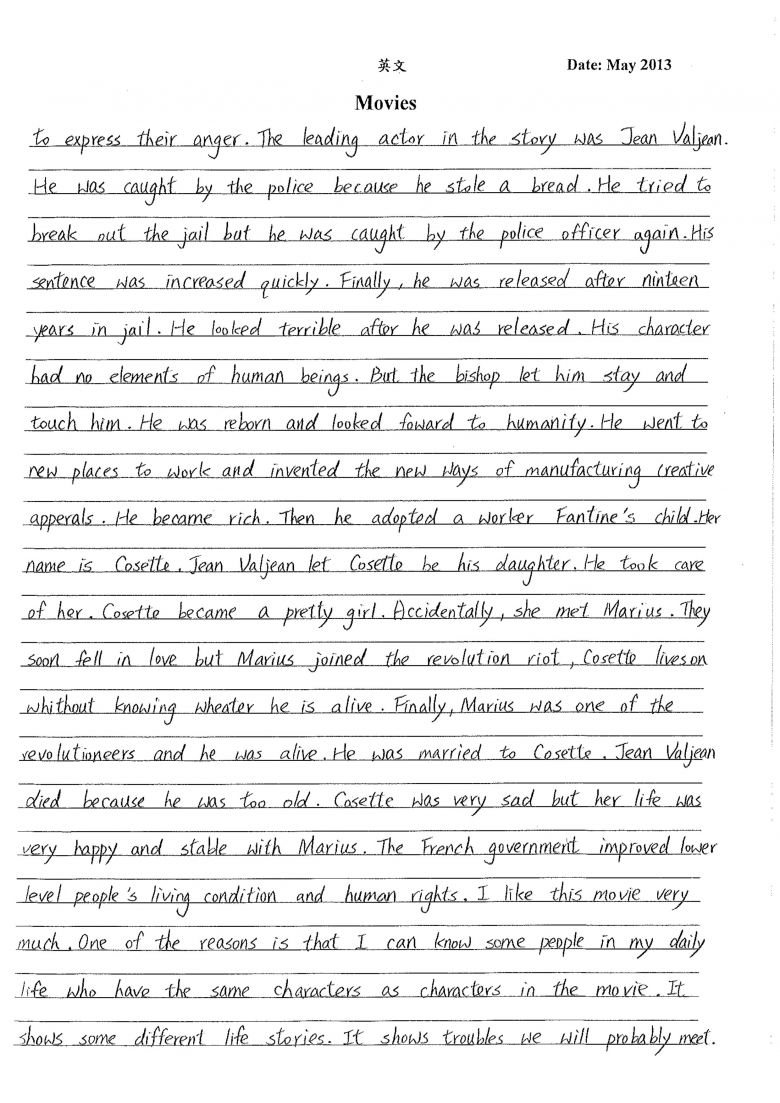 英文
Date: May 2013
Movies
to express their anger. The leading actor in the story was Jean Valjean.
He was caught by the police because he stole a bread. He tried to
break out the jail but he was caught by the police officer again. His
sentence was increased quickly. Finally, he was released after ninteen
years in jail. He looked terrible after he was released. His character
had no elements of human beings. But the bishop let him stay and
touch him. He was reborn and looked foward to humanity. He went to
new places to work and invented the new ways of manufacturing creative
apperals. He became rich. Then he adopted a worker Fantine's child. Her
name is Cosette. Jean Valjean let Cosette be his daughter. He took care
of her. Cosette became a pretty girl. Accidentally, she met Marius. They
soon fell in love but Marius joined the revolution riot, Cosette lives on
whithout knowing wheater he is alive. Finally, Marius was one of the
revolutioneers and he was alive. He was married to Cosette. Jean Valjean
died because he was too old. Cosette was very sad but her life was
very happy and stable with Marius. The French government improved lower
level people's living condition and human rights. I like this movie very
much. One of the reasons is that I can know some people in my daily
life who have the same characters as characters in the movie. It
shows some different life stories. It shows troubles we will probably meet.